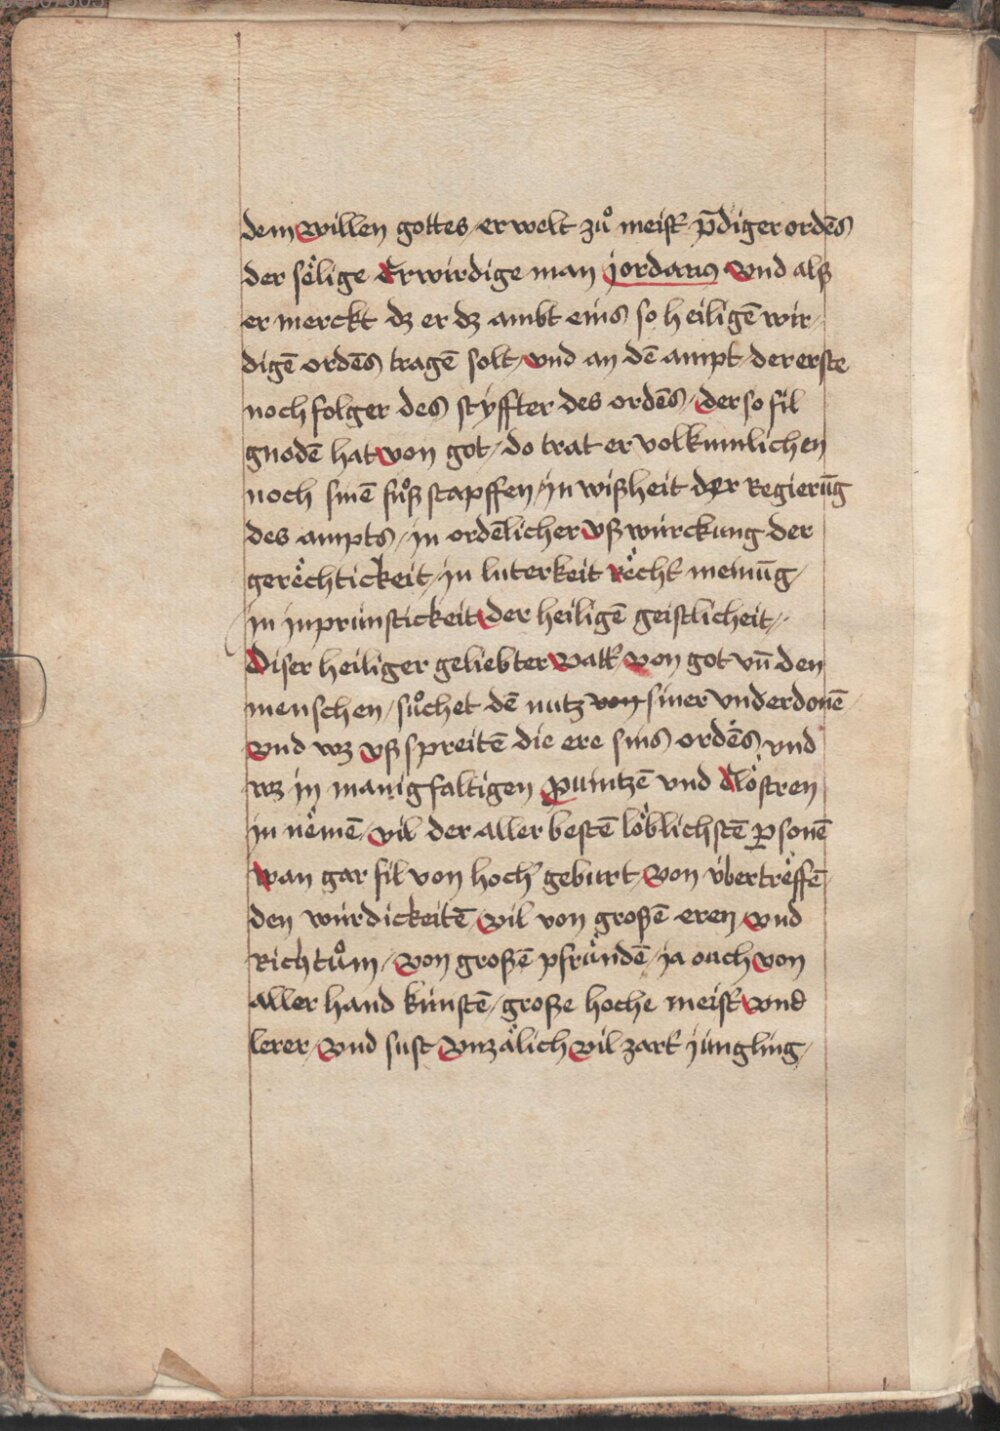 dem willen gottes / erwelt zů meist̕ p̄digerordēs
der sëlige Erwirdige man jordanꝰ Vnd alß
er merckt dz er dz ambt eins so heiligē wir⸗
digē ordēs tragē solt / vnd an dē ampt / der erste
nochfolger des styffter des ordēs / der so fil
gnodē hat von got / do trat er volkumlichen
noch sinē fůßstapffen / in wißheit der Regierūg
des ampts / in ordēlicher vßwürckung der
gerëchtickeit / in luterkeit rëcht̕ meinūg /
in inprünstickeit der heiligē geistlicheit /
Diser heiliger geliebter vatt̕ / von got vn̄ den
menschen / sůchet dē nutz von siner vnderdonē
Vnd wz vßspreitē die ere sins ordēs vnd
wz in manigfaltigen puintzē vnd klöstren
in nëmē / vil der aller bestē löblichstē ꝑsonē
Wan gar fil von hoch̕ geburt / Von übertrëffē
den würdickeitē / Vil von großē eren vnd
Richtům / Von großē pfründē / ja ouch von
aller hand künstē / große hoche meist̕ vnd
lerer / Vnd sust Vnzälich vil zart̕ jüngling /